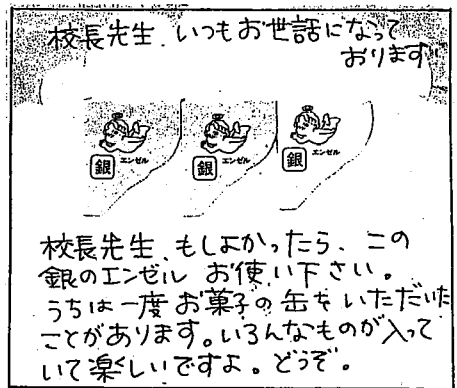 校長先生、いつもお世話になって
おります
銀 エンゼル 銀 エンゼル 銀 エンゼル
校長先生、もしよかったら、この
銀のエンゼル お使い下さい。
うちは一度お菓子の缶をいただいた
ことがあります。いろんなものが入って
いて楽しいですよ。どうぞ。